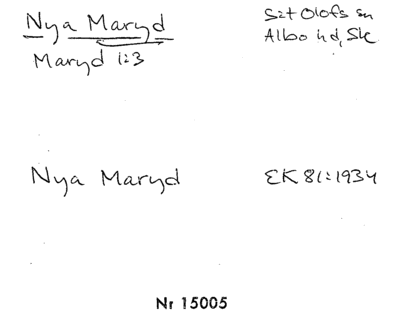 Nya Maryd
S:t Olofs sn
Maryd 1:3
Albo hd, Sk
Nya Maryd
EK 81:1934
Nr 15005